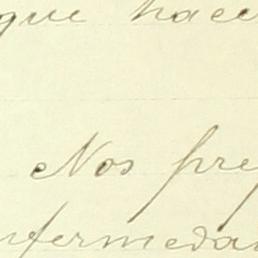 que hace
Nos pre
nfermeda